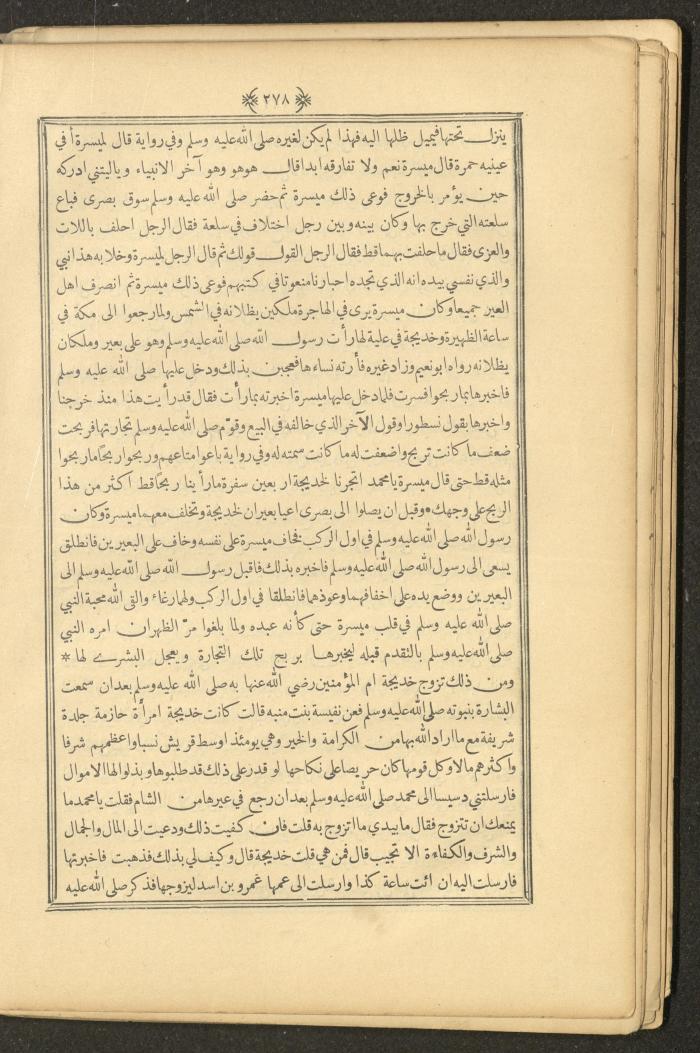 ﴿٢٧٨﴾
ينزل تحتها فيميل ظلها اليه فهذا لم يكن لغيره صلى الله عليه وسلم وفي رواية قال لميسرة أ في
عينيه حمرة قال ميسرة نعم ولا تفارقه ابدا قال هو هو وهو آخر الانبياء وياليتني ادركه
حين يؤمر بالخروج فوعى ذلك ميسرة ثم حضر صلى الله عليه وسلم سوق بصرى فباع
سلعته التي خرج بها وكان بينه وبين رجل اختلاف في سلعة فقال الرجل احلف باللات
والعزى فقال ما حلفت بهما قط فقال الرجل القول قولك ثم قال الرجل لميسرة وخلا به هذا نبي
والذي نفسي بيده انه الذي تجده احبارنا منعوتا في كتبهم فوعى ذلك ميسرة ثم انصرف اهل
العير جميعا وكان ميسرة يرى في الهاجرة ملكين يظلانه في الشمس ولما رجعوا الى مكة في
ساعة الظهيرة وخديجة في علية لها رأت رسول الله صلى الله عليه وسلم وهو على بعير وملكان
يظلانه رواه ابو نعيم وزاد غيره فأرته نساءها فعجبن بذلك ودخل عليها صلى الله عليه وسلم
فاخبرها بما ربحوا فسرت فلما دخل عليها ميسرة اخبرته بما رأت فقال قد رأيت هذا منذ خرجنا
واخبرها بقول نسطورا وقول الآخر الذي خالفه في البيع وقوّم صلى الله عليه وسلم تجارتها فربحت
ضعف ما كانت تربح واضعفت له ما كانت سمته له وفي رواية باعوا متاعهم وربحوا ربحًا ما ربحوا
مثله قط حتى قال ميسرة يا محمد اتجرنا لخديجة اربعين سفرة ما رأينا ربحًا قط اكثر من هذا
الربح على وجهك • وقبل ان يصلوا الى بصرى اعيا بعيران لخديجة وتخلف معهما ميسرة وكان
رسول الله صلى الله عليه وسلم في اول الركب فخاف ميسرة على نفسه وخاف على البعيرين فانطلق
يسعى الى رسول الله صلى الله عليه وسلم فاخبره بذلك فاقبل رسول الله صلى الله عليه وسلم الى
البعيرين ووضع يده على اخفافهما وعوذهما فانطلقا في اول الركب ولهما رغاء والقى الله محبة النبي
صلى الله عليه وسلم في قلب ميسرة حتى كأنه عبده ولما بلغوا مرّ الظهران امره النبي
صلى الله عليه وسلم بالتقدم قبله ليخبرها بربح تلك التجارة ويعجل البشرى لها *
ومن ذلك تزوج خديجة ام المؤمنين رضي الله عنها به صلى الله عليه وسلم بعد ان سمعت
البشارة بنبوته صلى الله عليه وسلم فعن نفيسة بنت منبه قالت كانت خديجة امرأة حازمة جلدة
شريفة مع ما اراد الله بها من الكرامة والخير وهي يومئذ اوسط قريش نسبا واعظمهم شرفا
واكثرهم مالا وكل قومها كان حريصا على نكاحها لو قدر على ذلك قد طلبوها وبذلوا لها الاموال
فارسلتني دسيسا الى محمد صلى الله عليه وسلم بعد ان رجع في عيرها من الشام فقلت يا محمد ما
يمنعك ان تتزوج فقال ما بيدي ما اتزوج به قلت فان كفيت ذلك ودعيت الى المال والجمال
والشرف والكفاءة الا تجيب قال فمن هي قلت خديجة قال وكيف لي بذلك فذهبت فاخبرتها
فارسلت اليه ان ائت ساعة كذا وارسلت الى عمها عمرو بن اسد ليزوجها فذكر صلى الله عليه